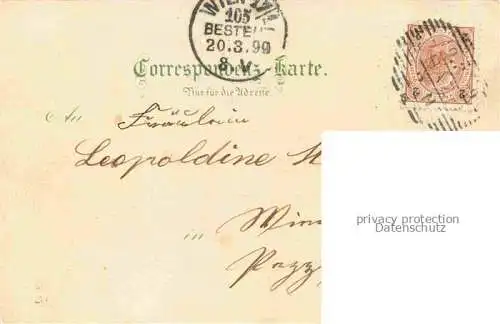 105
BESTELLT
20.3.99
8.V.
Correspondenz-Karte.
Nur für die Adresse.
An Fräulein
Leopoldine
in Wien
privacy protection
Datenschutz